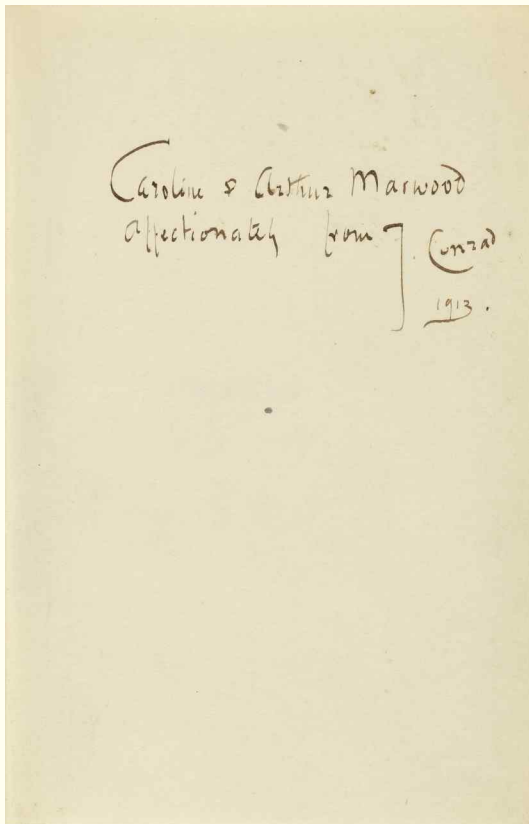 Caroline & Arthur Marwood
affectionately from J. Conrad
1913.